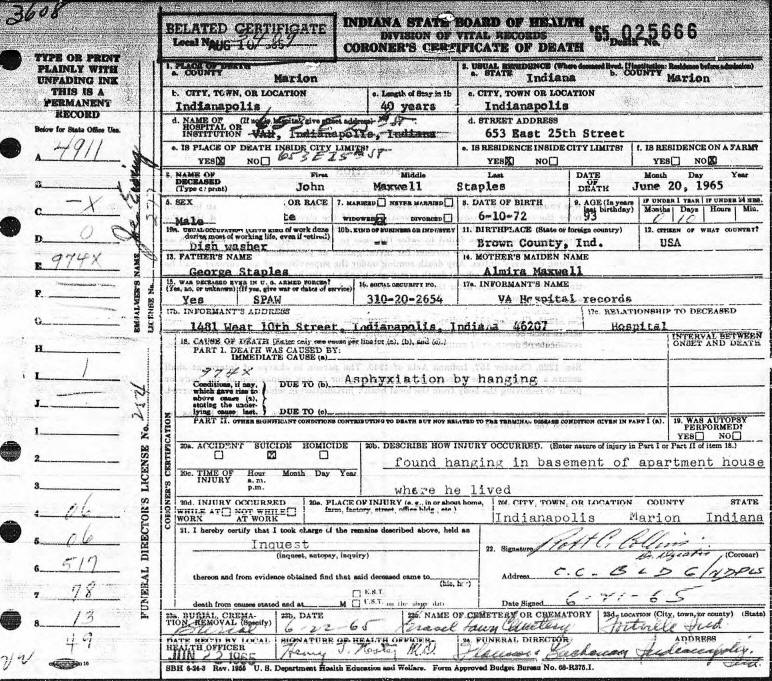 3608
BELATED CERTIFICATE
Local No.
AUG 10 1965
INDIANA STATE BOARD OF HEALTH
DIVISION OF VITAL RECORDS
CORONER'S CERTIFICATE OF DEATH
'65 025666
Death No.
TYPE OR PRINT
PLAINLY WITH
UNFADING INK
THIS IS A
PERMANENT
RECORD
Below for State Office Use.
A 4911
B
C -X
D 0
E 974X
F
G
H
I 1
J
1
2
3
4 06
5 06
6 517
7 78
8 13
49
EMBALMER'S NAME
LICENSE No.
FUNERAL DIRECTOR'S LICENSE No.
CORONER'S CERTIFICATION
1. PLACE OF DEATH
a. COUNTY
Marion
2. USUAL RESIDENCE (Where deceased lived. If institution: Residence before admission)
a. STATE Indiana b. COUNTY Marion
b. CITY, TOWN, OR LOCATION
Indianapolis
c. Length of Stay in 1b
40 years
c. CITY, TOWN OR LOCATION
Indianapolis
d. NAME OF (If not in hospital, give street address)
HOSPITAL OR
INSTITUTION VAH, Indianapolis, Indiana
d. STREET ADDRESS
653 East 25th Street
e. IS PLACE OF DEATH INSIDE CITY LIMITS?
YES X NO
e. IS RESIDENCE INSIDE CITY LIMITS?
YES X NO
f. IS RESIDENCE ON A FARM?
YES NO X
3. NAME OF
DECEASED
(Type or print)
First Middle Last
John Maxwell Staples
DATE
OF
DEATH
Month Day Year
June 20, 1965
5. SEX
Male
OR RACE
7. MARRIED NEVER MARRIED
WIDOWED DIVORCED
8. DATE OF BIRTH
6-10-72
9. AGE (In years
last birthday)
93
IF UNDER 1 YEAR IF UNDER 24 HRS.
Months Days Hours Min.
10a. USUAL OCCUPATION (Give kind of work done
during most of working life, even if retired)
Dish washer
10b. KIND OF BUSINESS OR INDUSTRY
--
11. BIRTHPLACE (State or foreign country)
Brown County, Ind.
12. CITIZEN OF WHAT COUNTRY?
USA
13. FATHER'S NAME
George Staples
14. MOTHER'S MAIDEN NAME
Almira Maxwell
15. WAS DECEASED EVER IN U. S. ARMED FORCES?
(Yes, no, or unknown) (If yes, give war or dates of service)
Yes SPAW
16. SOCIAL SECURITY NO.
310-20-2654
17a. INFORMANT'S NAME
VA Hospital records
17b. INFORMANT'S ADDRESS
1481 West 10th Street, Indianapolis, Indiana 46207
17c. RELATIONSHIP TO DECEASED
Hospital
18. CAUSE OF DEATH (Enter only one cause per line for (a), (b), and (c).)
PART I. DEATH WAS CAUSED BY:
IMMEDIATE CAUSE (a)
INTERVAL BETWEEN
ONSET AND DEATH
974X
Conditions, if any,
which gave rise to
above cause (a),
stating the under-
lying cause last.
DUE TO (b) Asphyxiation by hanging
DUE TO (c)
PART II. OTHER SIGNIFICANT CONDITIONS CONTRIBUTING TO DEATH BUT NOT RELATED TO THE TERMINAL DISEASE CONDITION GIVEN IN PART I (a).
19. WAS AUTOPSY
PERFORMED?
YES NO
20a. ACCIDENT SUICIDE HOMICIDE
X
20b. DESCRIBE HOW INJURY OCCURRED. (Enter nature of injury in Part I or Part II of item 18.)
found hanging in basement of apartment house
where he lived
20c. TIME OF
INJURY
Hour Month Day Year
a. m.
p.m.
20d. INJURY OCCURRED
WHILE AT NOT WHILE
WORK AT WORK
20e. PLACE OF INJURY (e. g., in or about home,
farm, factory, street, office bldg., etc.)
20f. CITY, TOWN, OR LOCATION COUNTY STATE
Indianapolis Marion Indiana
21. I hereby certify that I took charge of the remains described above, held an
Inquest
(inquest, autopsy, inquiry)
thereon and from evidence obtained find that said deceased came to
(his, her)
death from causes stated and at M
E.S.T.
22. Signature (Coroner)
Address C.C. BLDG INDPLS
Date Signed
23a. BURIAL, CREMA-
TION, REMOVAL (Specify)
Burial
23b. DATE
6-22-65
23c. NAME OF CEMETERY OR CREMATORY
Cemetery
23d. LOCATION (City, town, or county) (State)
Fortville Ind
DATE REC'D BY LOCAL
HEALTH OFFICER
JUN 22 1965
SIGNATURE OF HEALTH OFFICER
M.D.
24. FUNERAL DIRECTOR
ADDRESS
Indianapolis, Ind.
SBH 6-24-3 Rev. 1955 U. S. Department Health Education and Welfare. Form Approved Budget Bureau No. 68-R375.1.